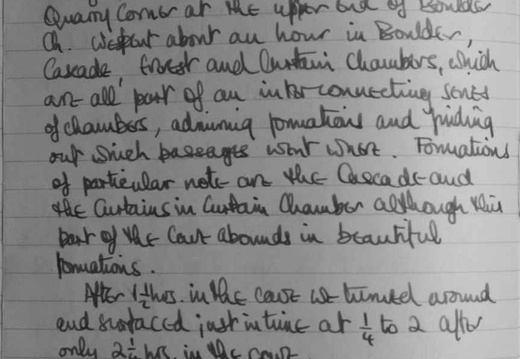 Quarry Corner at the upper end of Boulder
Ch. We spent about an hour in Boulder,
Cascade, Forest and Curtain Chambers, which
are all part of an interconnecting series
of chambers, admiring formations and finding
out which passages went where. Formations
of particular note are the Cascade and
the Curtains in Curtain Chamber although this
part of the cave abounds in beautiful
formations.
After 1½ hrs. in the cave we turned around
and surfaced just in time at ¼ to 2 after
only 2¼ hrs in the cave.